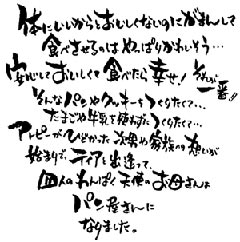 体にいいからとおいしくないのにがまんして
食べさせるのはやっぱりかわいそう…
安心しておいしくて食べたら幸せ!それが
一番!!
そんなパンやクッキーをつくりたくて…
たまごや牛乳を使わずつくりたくて…
アトピーがひどかった次男や家族の想いが
始まりで、ティアと出逢って、
四人のわんぱく天使のお母さんは
パン屋さんに
なりました。